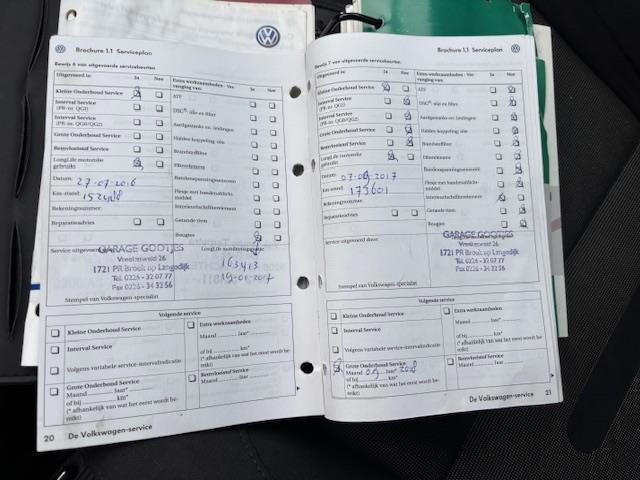 Brochure 1.1 Serviceplan
Bewijs 6 van uitgevoerde servicebeurten
Uitgevoerd is: Ja Nee
Extra werkzaamheden - Vervanging van: Ja Nee
Kleine Onderhoud Service
ATF
Interval Service (PR-nr. QG1)
DSG®: olie en filter
Interval Service (PR-nr. QG0/QG2)
Aardgastanks en -leidingen
Grote Onderhoud Service
Haldex koppeling: olie
Remvloeistof Service
Brandstoffilter
LongLife motorolie gebruikt
Filterelement
Datum: 27-07-2016
Bandenspanningssensoren
Km-stand:
Flesje met bandenafdichtmiddel
Rekeningnummer:
Interieurfilterelement
Reparatieadvies
Getande riem
Bougies
GARAGE GOOTJES
Vroedschapstraat 26
1721 PR Broek op Langedijk
Tel. 0226 - 32 07 77
Fax 0226 - 34 32 56
163413
19-01-2017
Stempel van Volkswagen-specialist
Volgende service
Kleine Onderhoud Service
Extra werkzaamheden
Maand ........ Jaar*
Interval Service
of bij ........ km*
Volgens variabele service-intervalindicatie
(* afhankelijk van wat het eerst wordt bereikt)
Grote Onderhoud Service
Maand ........ Jaar*
of bij ........ km*
(* afhankelijk van wat het eerst wordt bereikt)
Remvloeistof Service
Maand ........ Jaar
20 De Volkswagen-service
Brochure 1.1 Serviceplan
Bewijs 7 van uitgevoerde servicebeurten
Uitgevoerd is: Ja Nee
Extra werkzaamheden - Vervanging van: Ja Nee
Kleine Onderhoud Service
ATF
Interval Service (PR-nr. QG1)
DSG®: olie en filter
Interval Service (PR-nr. QG0/QG2)
Aardgastanks en -leidingen
Grote Onderhoud Service
Haldex koppeling: olie
Remvloeistof Service
Brandstoffilter
LongLife motorolie gebruikt
Filterelement
Datum: 07-09-2017
Bandenspanningssensoren
Km-stand: 173601
Flesje met bandenafdichtmiddel
Rekeningnummer:
Interieurfilterelement
Reparatieadvies
Getande riem
Bougies
Service uitgevoerd door:
GARAGE GOOTJES
1721 PR Broek op Langedijk
Tel. 0226 - 32 07 77
Fax 0226 - 34 32 56
Stempel van Volkswagen-specialist
Volgende service
Kleine Onderhoud Service
Extra werkzaamheden
Maand ........ Jaar*
Interval Service
of bij ........ km*
Volgens variabele service-intervalindicatie
(* afhankelijk van wat het eerst wordt bereikt)
Grote Onderhoud Service
Maand 09 Jaar* 2018
of bij ........ km*
(* afhankelijk van wat het eerst wordt bereikt)
Remvloeistof Service
Maand ........ Jaar
De Volkswagen-service 21